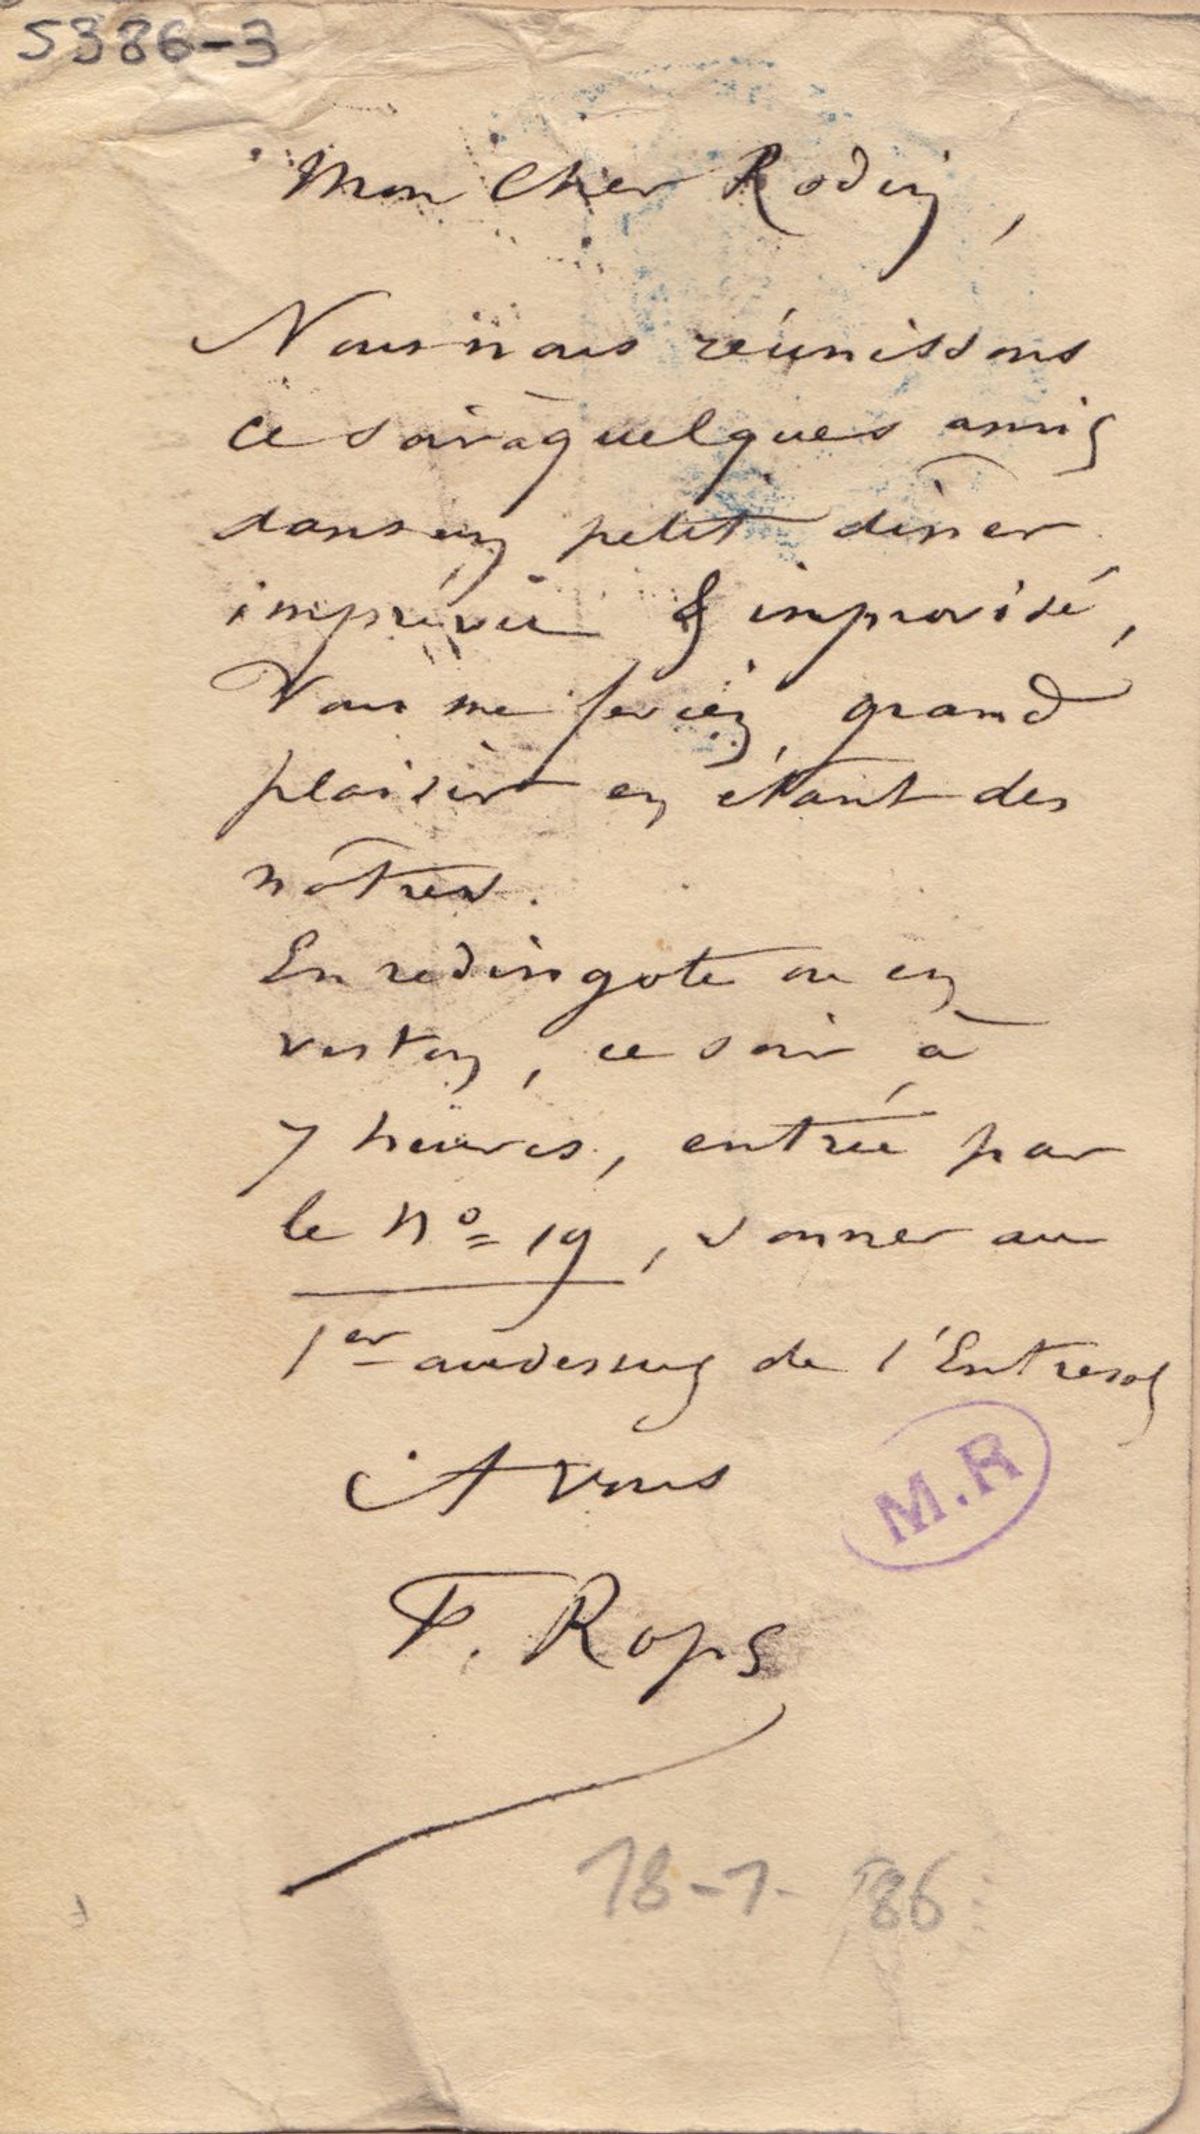 5386-3
Mon Cher Rodin,
Nous nous réunissons
ce soir à quelques amis
dans un petit dîner
imprévu & improvisé,
Vous me feriez grand
plaisir en étant des
nôtres.
En redingote ou en
veston, ce soir à
7 heures, entrée par
le No 19, sonner au
1er audessus de l'Entresol
A vous
M.R
F. Rops
18-1-86